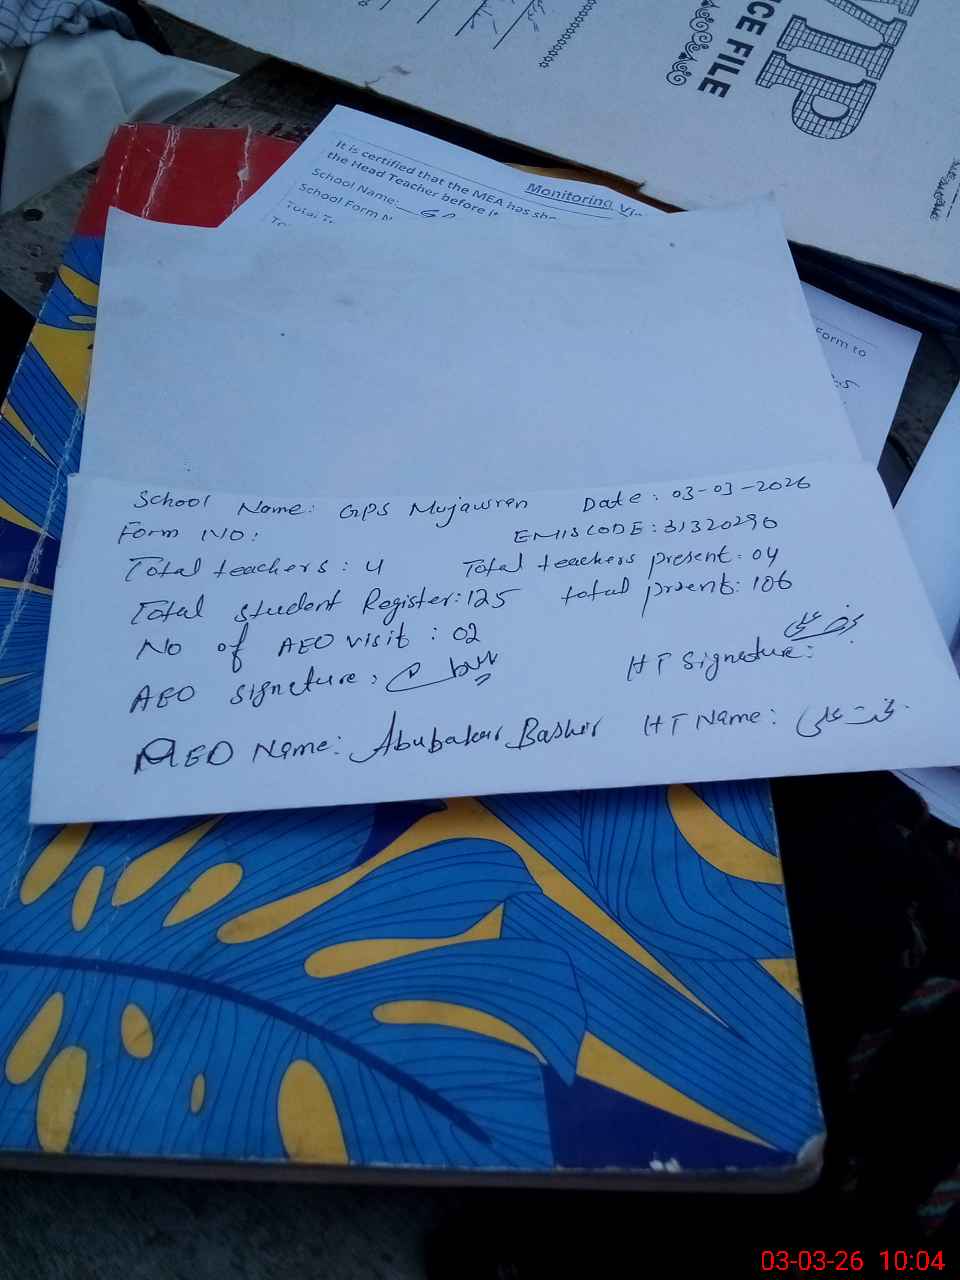 MIP
ICE FILE
Monitoring Vi
It is certified that the MEA has sh
the Head Teacher before
School Name:
School Form N
Total T
Form to
School Name: GPS Mujawren Date: 03-03-2026
Form No: EMISCODE: 31320290
Total teachers: 4 Total teachers present: 04
Total student Register: 125 total prsent: 106
No of AEO visit: 02
AEO signeture: HT Signeture:
AEO Name: Abubakar Bashir HT Name: بخت علی
03-03-26 10:04